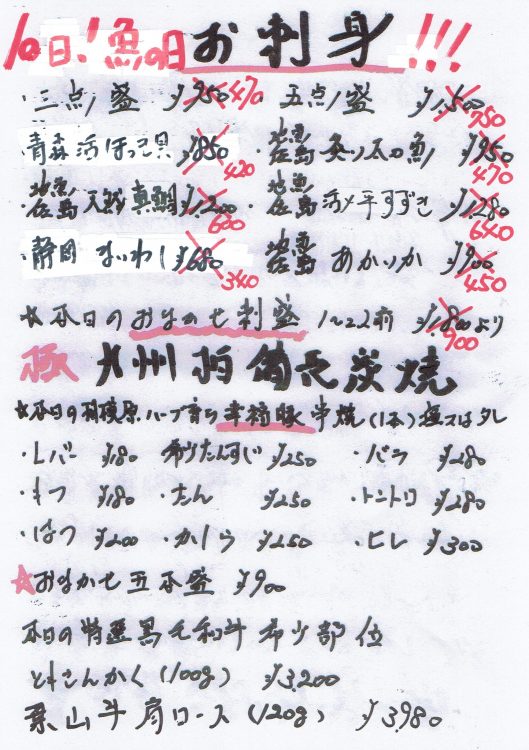 10日!魚の日お刺身!!!
・三点盛 ¥950 470 五点盛 ¥1,500 750
・青森活ほっき貝 ¥850 420 ・地魚佐島炙り太刀魚 ¥950 470
・地魚佐島天然真鯛 ¥1,200 600 ・地魚佐島活〆平すずき ¥1,280 640
・静岡まいわし ¥680 340 地魚佐島あかいか ¥900 450
☆本日のおまかせ刺盛 1〜2人前 ¥1,800より 900
豚 九州 備長炭焼
☆本日の相模原ハーブ育ち幸福豚串焼(1本)塩又はタレ
・レバー ¥180 希少たんすじ ¥250 ・バラ ¥280
・もつ ¥180 ・たん ¥250 ・トントロ ¥280
・はつ ¥200 ・かしら ¥250 ・ヒレ ¥300
☆おまかせ五本盛 ¥900
本日の特選黒毛和牛希少部位
ともさんかく(100g) ¥3,200
葉山牛肩ロース(120g) ¥3,980